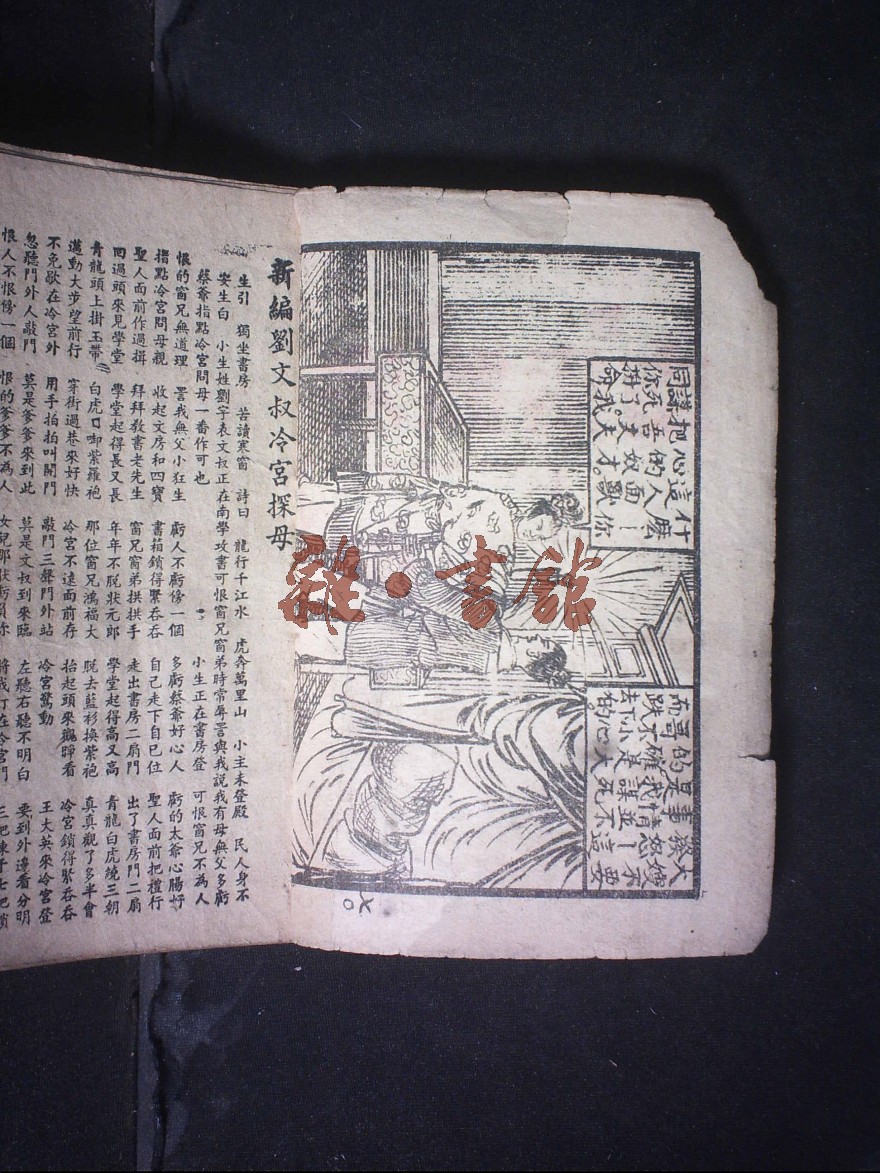 什麼！你
這人面獸
心的奴才。
把吾丈夫
謀死了。我
同你拚命
大嫂不要
新編劉文叔冷宮探母
生引 獨坐書房 苦讀寒窗 詩曰 龍行千江水 虎奔萬里山 小主未登殿 民人身不
安生白 小生姓劉字表文叔正在南學攻書可恨窗兄窗弟時常辱罵與我說我有母無父多虧
蔡爺指點冷宮問母一番作可也 小生正在書房登 可恨窗兄不為人
恨的窗兄無道理 罵我無父小狂生 虧人不虧傍一個 多虧蔡爺好心人 虧的太爺心腸好
指點冷宮問母親 收起文房和四寶 書箱鎖得緊吞吞 自己走下自己位 聖人面前把禮行
聖人面前作過揖 拜拜教書老先生 窗兄窗弟拱拱手 走出書房二扇門 出了書房門二扇
回過頭來見學堂 學堂起得長又長 年年不脫狀元郎 學堂起得高又高 青龍白虎繞三朝
青龍頭上掛玉帶 白虎口啣紫羅袍 那位窗兄鴻福大 脫去藍衫換紫袍 真真觀了多半會
邁動大步望前行 穿街過巷來好快 冷宮不遠面前存 抬起頭來觀睜看 冷宮鎖得緊吞吞
不免歇在冷宮外 用手拍拍叫開門 敲門三聲門外站 冷宮驚動 王大英來冷宮登
忽聽門外人敲門 莫是爹爹來到此 莫是文叔到來臨 左聽右聽不明白 要到外邊看分明
恨人不恨傍一個 恨的爹爹不為人